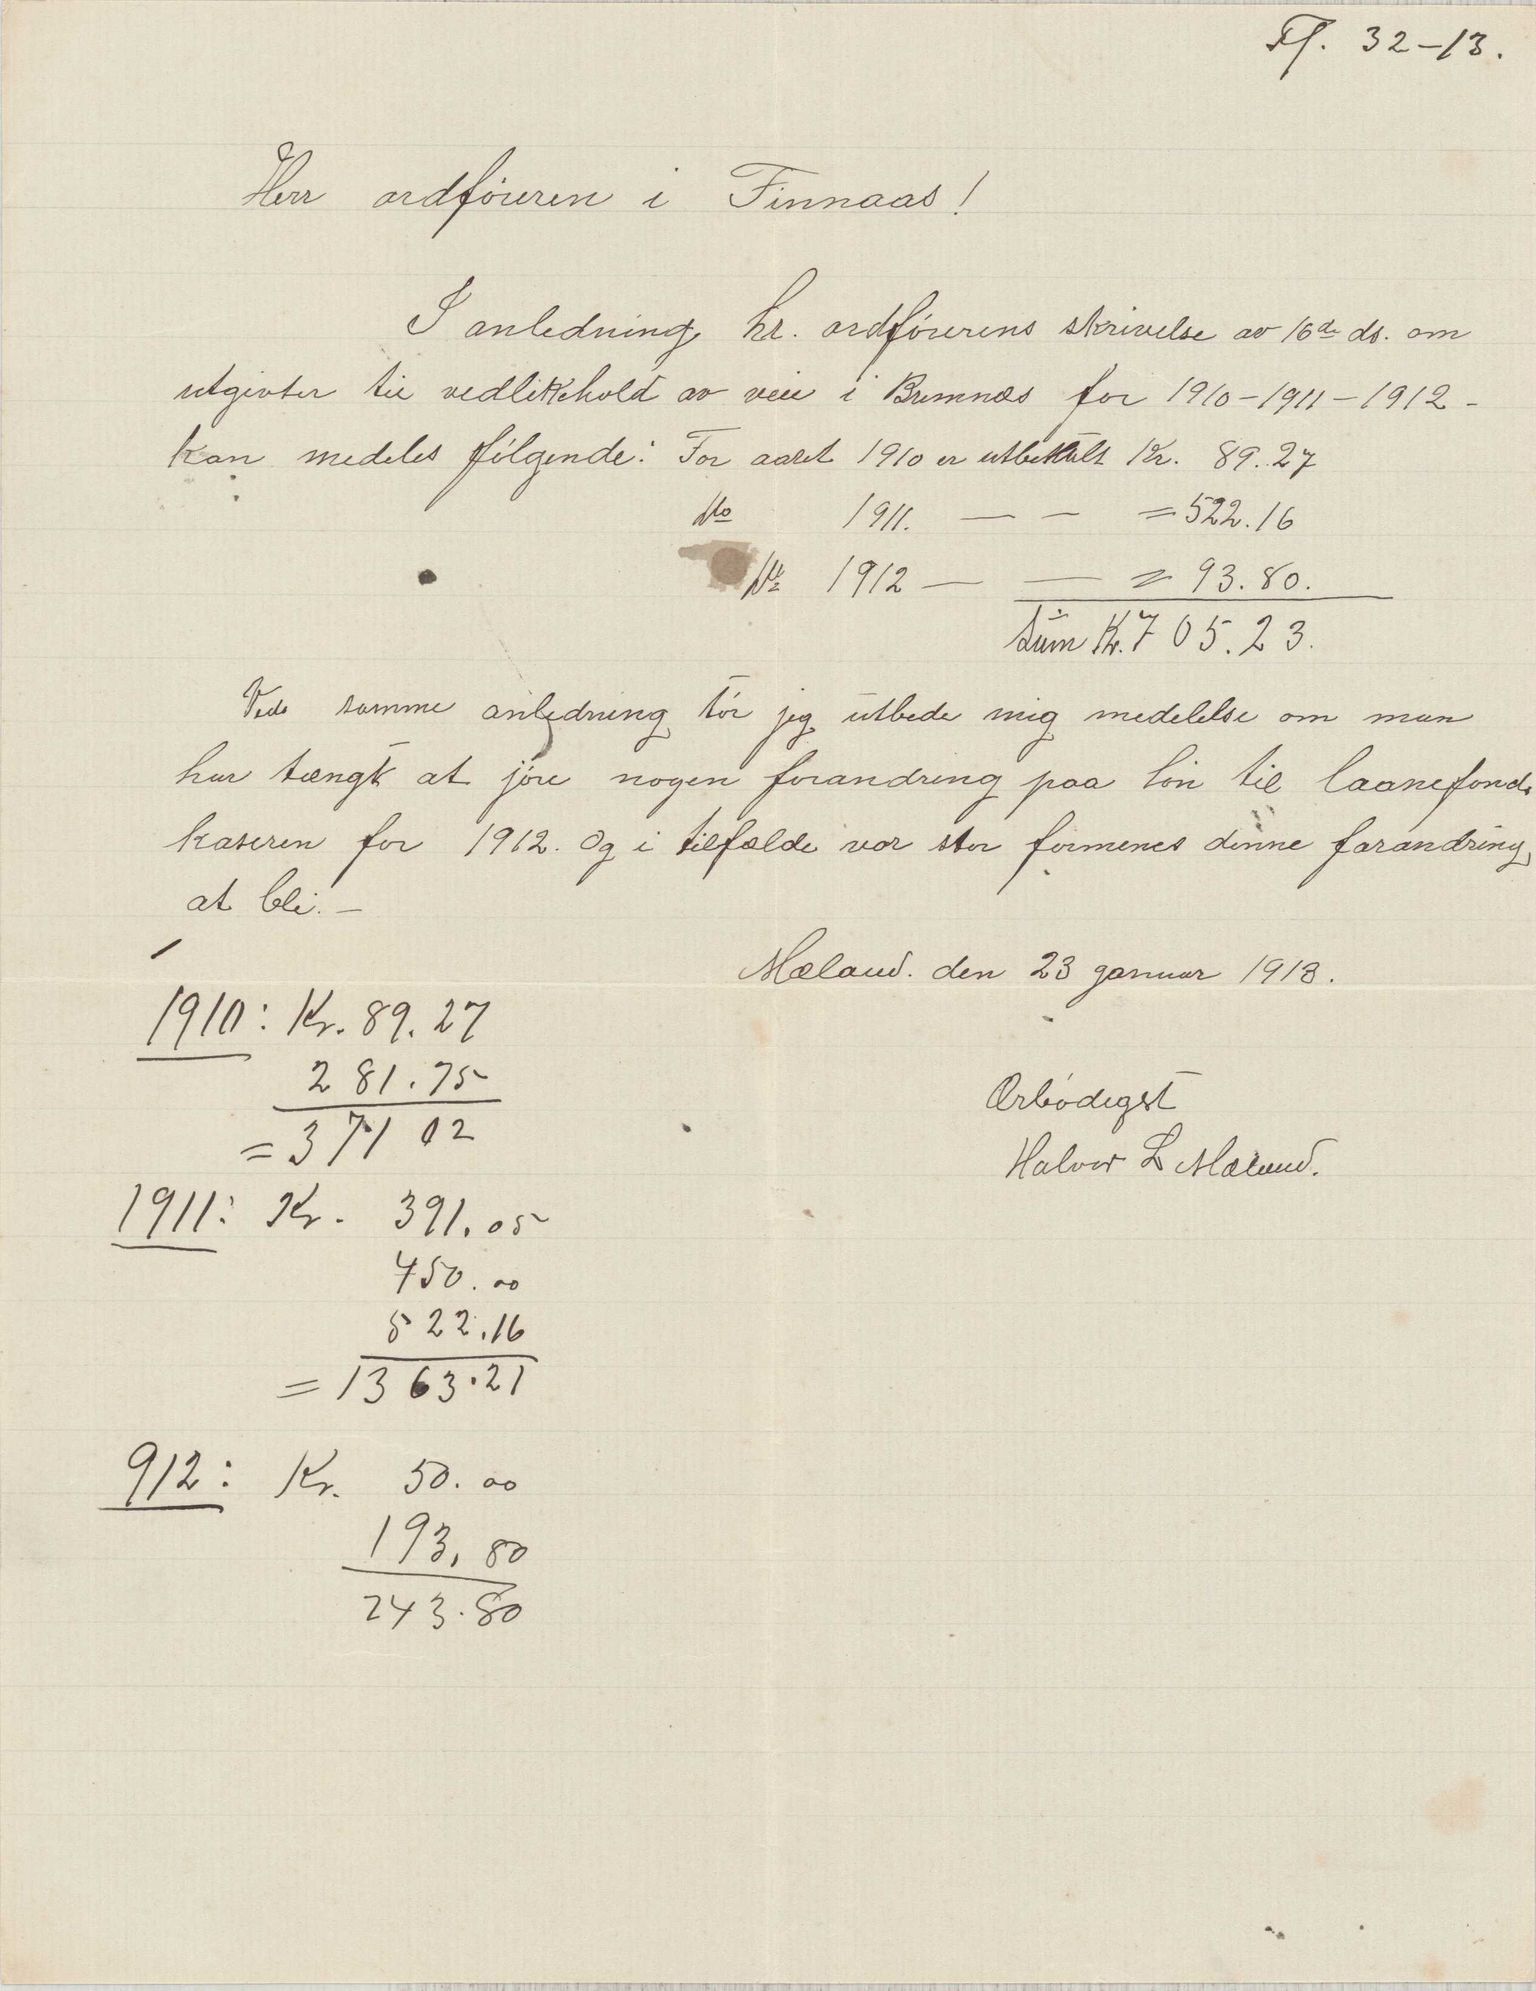 Ff. 32-13.
Herr ordföreren i Finnaas!
I anledning hr. ordförerens skrivelse av 16de ds. om
utgivter til vedlikehold av veie i Bremnæs for 1910-1911-1912-
kan medeles fölgende: For aaret 1910 er utbetalt Kr. 89.27
Do 1911. — - = 522.16
Do 1912 — — = 93.80.
Sum Kr. 705.23.
Ved samme anledning tör jeg utbede mig medelelse om man
har tængk at jöre nogen forandring paa lön til laanefonds
kaseren for 1912. Og i tilfælde vor stor formenes denne forandring
at bli. —
Mæland. den 23 januar 1913.
Ærbödigst
Halvor L Mæland.
1910: Kr. 89.27
281.75
= 371 02
1911: Kr. 391.05
450.00
522.16
= 1363.21
912: Kr. 50.00
193.80
243.80